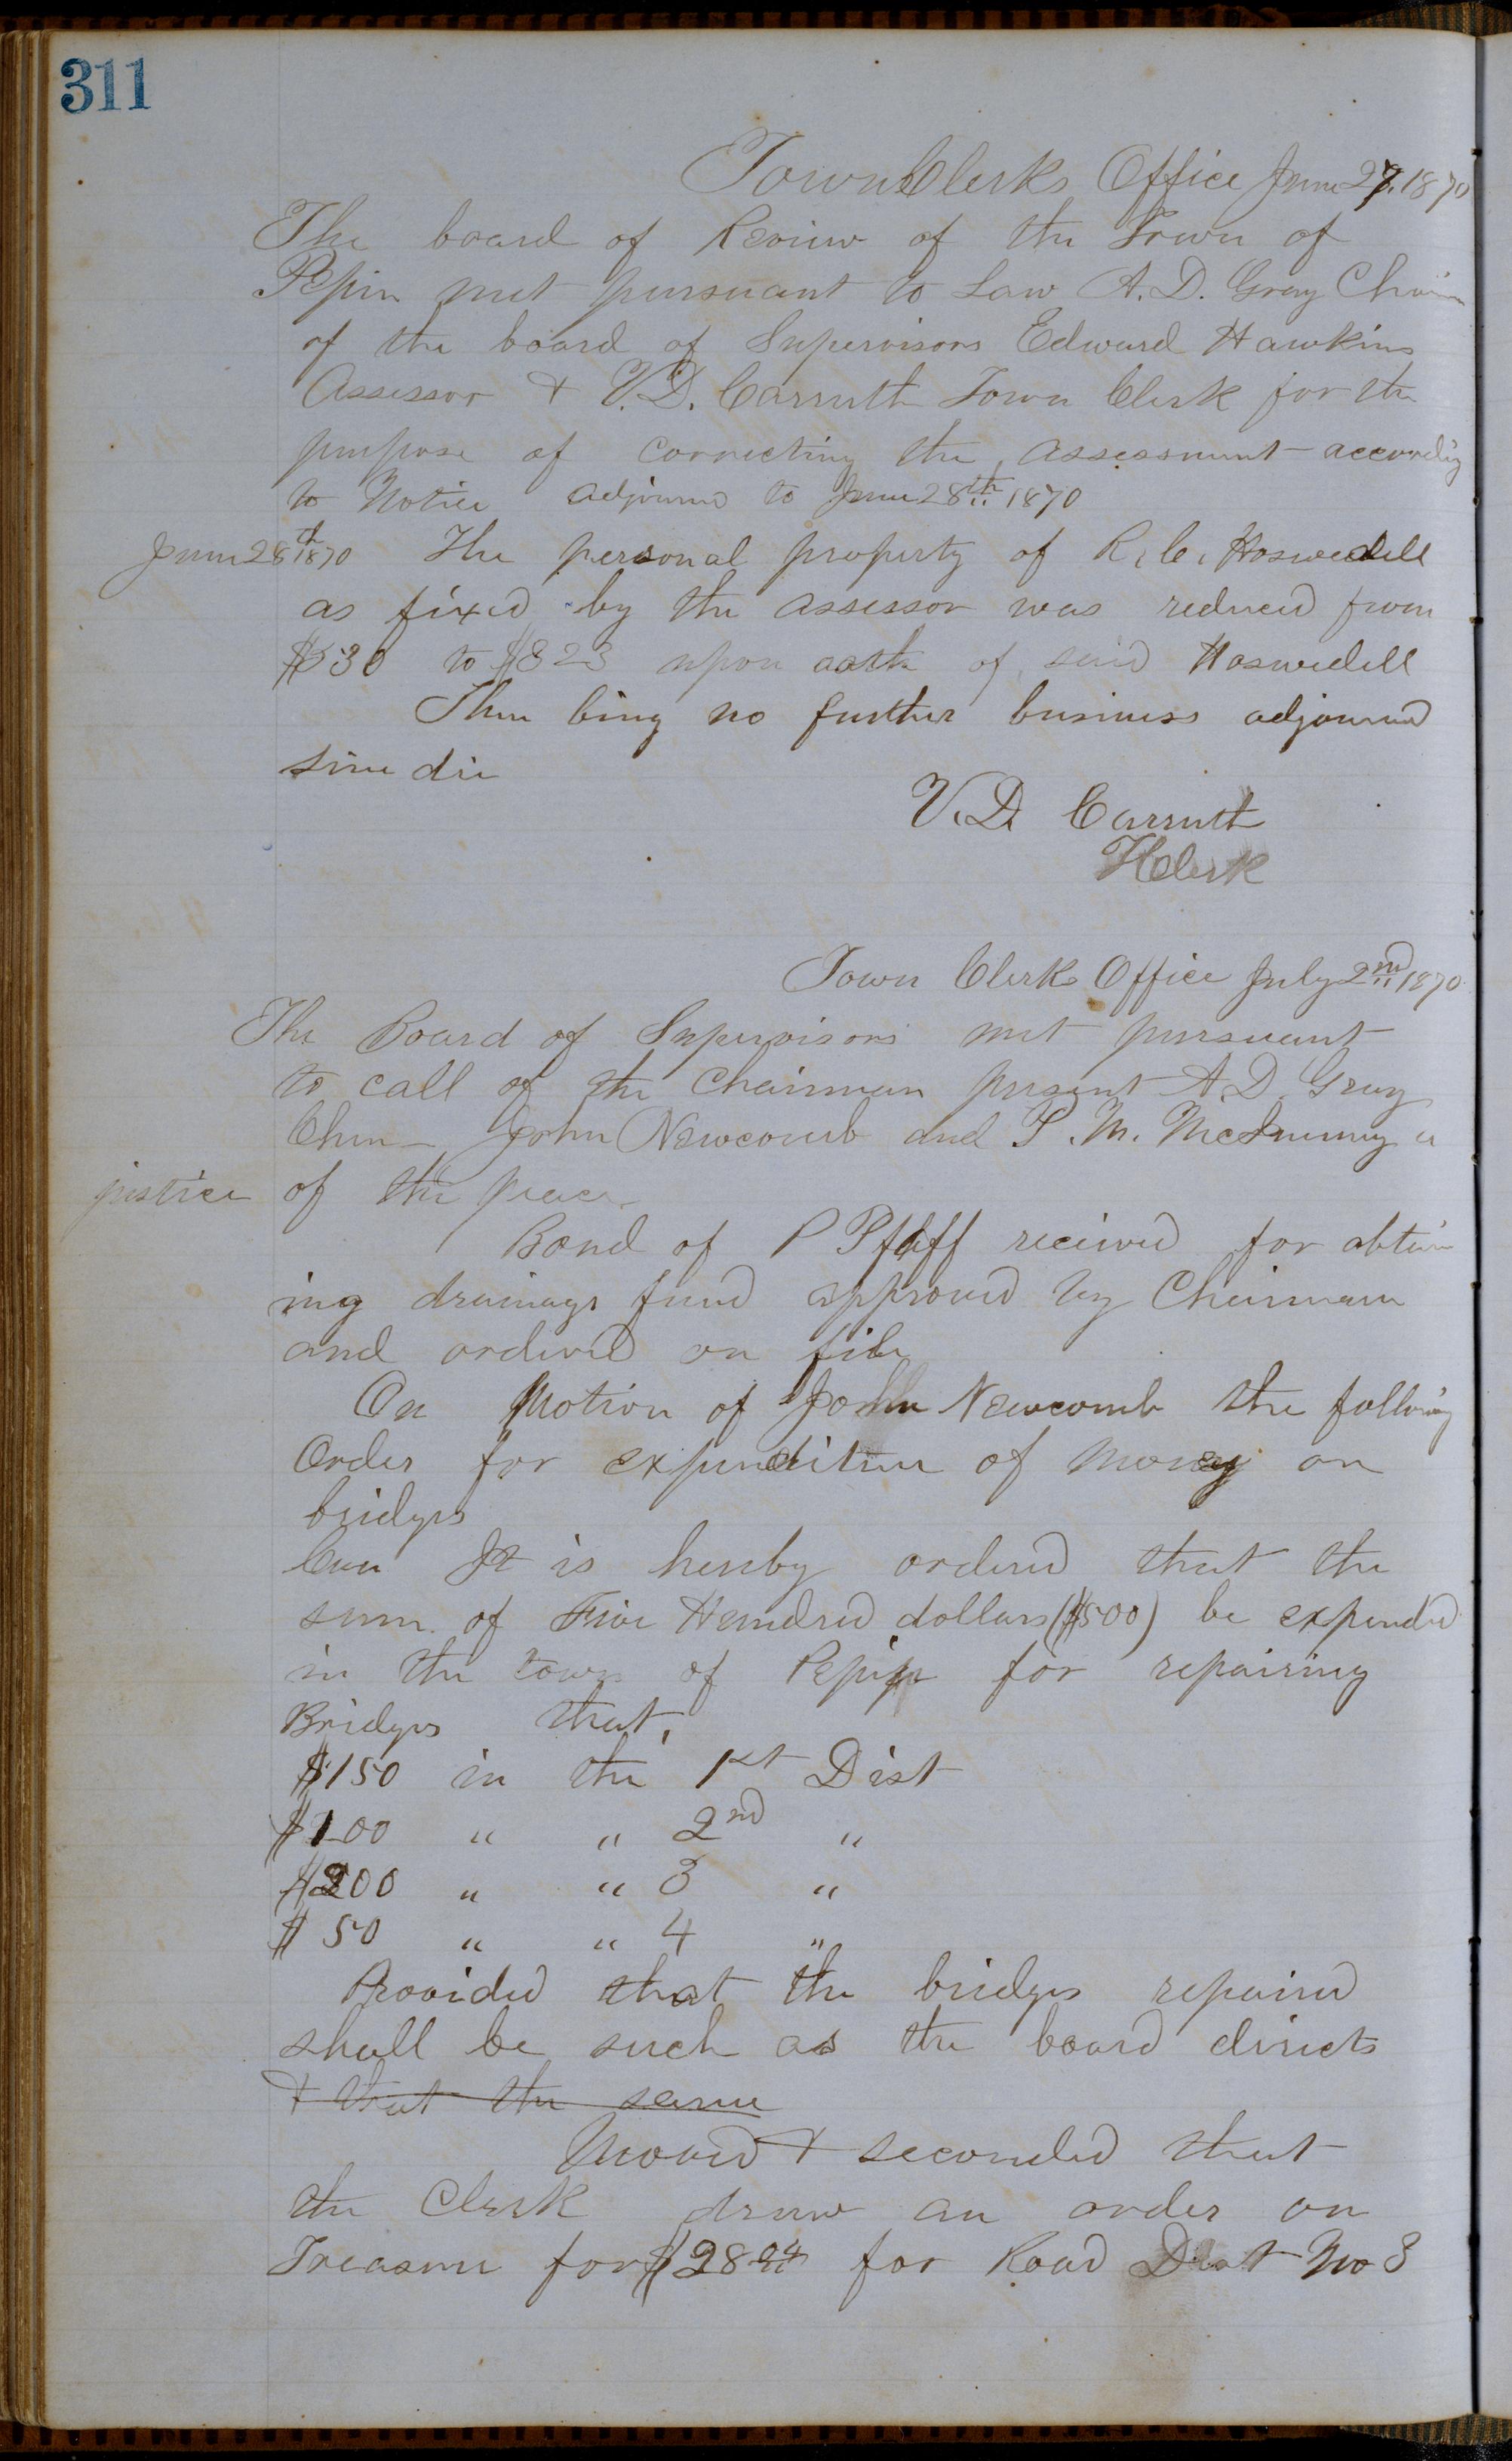 311
Town Clerks Office June 27, 1870
The board of Review of the Town of
Pepin met pursuant to Law A. D. Gray Chairm
of the board of Supervisors Edward Hawkins
Assessor & V. D. Carruth Town Clerk for the
purpose of correcting the assessment according
to Notice adjourned to June 28th 1870
June 28th 1870 The personal property of R. C.
as fixed by the assessor was reduced from
to $823 upon oath of said
There being no further business adjourned
sine die
V. D. Carruth
T Clerk
Town Clerks Office July 2nd 1870
The Board of Supervisors met pursuant
to call of the Chairman present A. D. Gray
Chm - John Newcomb and P. M. a
justice of the peace
Bond of P Pfaff received for obtain
ing drainage fund approved by Chairman
and ordered on file
On Motion of John Newcomb the following
Order for expenditure of money on
bridges
It is hereby ordered that the
sum of Five Hundred dollars ($500) be expended
in the town of Pepin for repairing
Bridges that,
$150 in the 1st Dist
$100 " " 2nd "
$200 " " 3 "
$50 " " 4 "
Provided that the bridges repaired
shall be such as the board directs
& that the same
Moved & seconded that
the Clerk draw an order on
Treasurer for $28 24 for Road Dist No 3